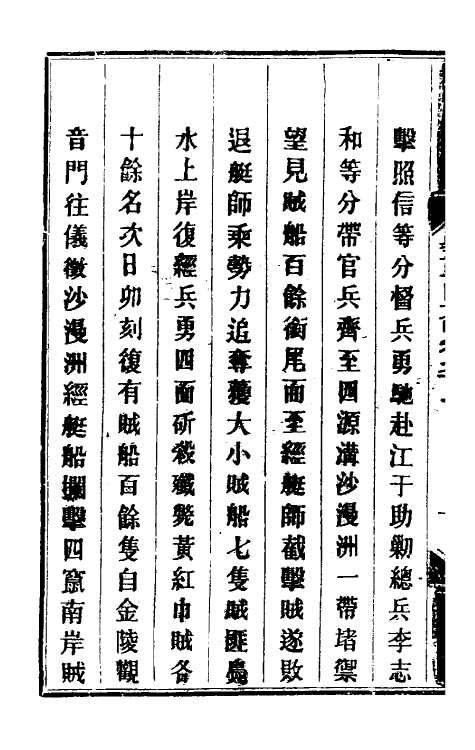 擊照信等分督兵勇馳赴江干助勦總兵李志
和等分帶官兵齊至四源溝沙漫洲一帶堵禦
望見賊船百餘銜尾而至經艇師截擊賊遂敗
退艇師乘勢力追奪獲大小賊船七隻賊匪鳧
水上岸復經兵勇四面斫殺殲斃黃紅巾賊各
十餘名次日卯刻復有賊船百餘隻自金陵觀
音門往儀徵沙漫洲經艇船攔擊四竄南岸賊